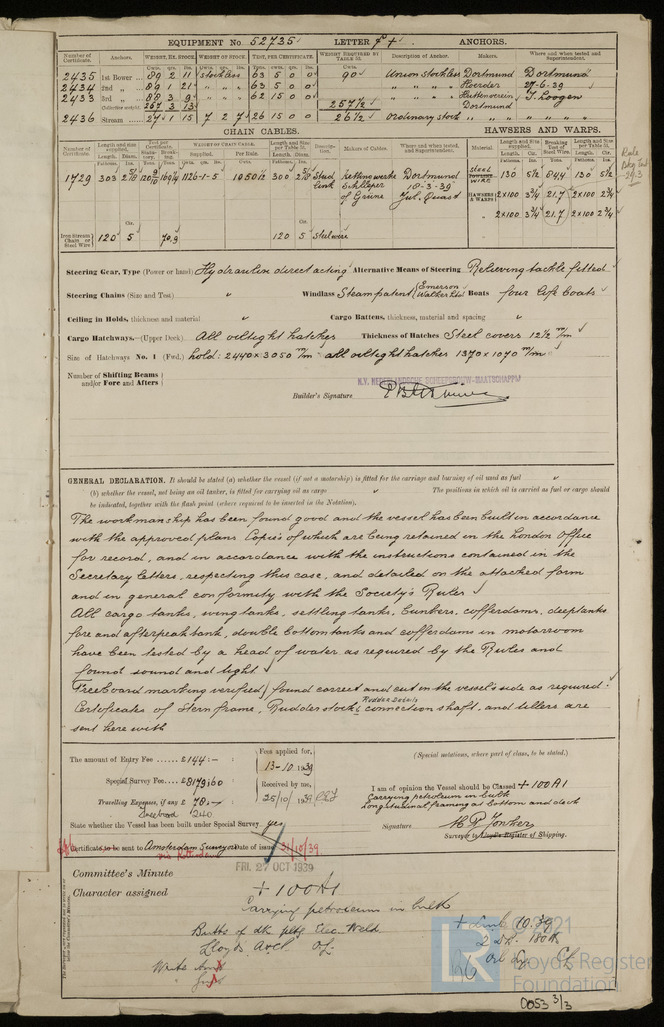 EQUIPMENT No. 52735 LETTER f + . ANCHORS.
Number of Certificate. Anchors. WEIGHT, EX. STOCK. WEIGHT OF STOCK. TEST, PER CERTIFICATE. WEIGHT REQUIRED BY TABLE 31. Description of Anchor. Makers. Where and when tested and Superintendent.
Cwts. qrs. lbs. Cwts. qrs. lbs. Tons. cwts. qrs. lbs. Cwts.
2435 1st Bower 89 2 11 stockless 63 5 0 0 90 Union stockless Dortmund Dortmund
2434 2nd „ 89 1 21 „ „ „ 63 5 0 0 „ „ Hoerder 27-6-39
2433 3rd „ 87 3 9 „ „ „ 62 15 0 0 „ „ Huttenverein J. Loogen
Collective weight 267 3 13 257½ Dortmund
2436 Stream 27 1 15 7 2 7 26 15 0 0 26½ ordinary stock „ „ „ „ „
CHAIN CABLES. HAWSERS AND WARPS.
Number of Certificate. Length and size supplied. Test per Certificate. WEIGHT OF CHAIN CABLE. Length and Size per Table 31. Description. Makers of Cables. Where and when tested, and Superintendent. Material Length and Size supplied. Breaking Test of Steel Wire. Length and Size per Table 31.
1729 303 1126-1-5 1050 300 Stud link Kettenwerke Dortmund steel wire 130 5½ 64,4 130 5½
Schlieper 18-3-39 HAWSERS & WARPS 2x100 3¾ 21.7 2x100 2¾
of Grüne Jul. Quast „ 2x100 3¾ 21.7 2x100 2¾
Iron Stream Chain or Steel Wire 120 5 70,9 120 5 Steelwire
Steering Gear, Type (Power or hand) Hydraulic direct acting Alternative Means of Steering Relieving tackle fitted
Steering Chains (Size and Test) „ Windlass Steam patent Emerson Walker Ltd Boats four life boats
Ceiling in Holds, thickness and material „ Cargo Battens, thickness, material and spacing „
Cargo Hatchways.—(Upper Deck) All oiltight hatches Thickness of Hatches Steel covers 12½ m/m
Size of Hatchways No. 1 (Fwd.) hold: 2440 x 3050 m/m - all oiltight hatches 1370 x 1070 m/m
Number of Shifting Beams and/or Fore and Afters
N.V. NEDERLANDSCHE SCHEEPSBOUW-MAATSCHAPPIJ
Builder's Signature
GENERAL DECLARATION. It should be stated (a) whether the vessel (if not a motorship) is fitted for the carriage and burning of oil used as fuel „
(b) whether the vessel, not being an oil tanker, is fitted for carrying oil as cargo The positions in which oil is carried as fuel or cargo should
be indicated, together with the flash point (where required to be inserted in the Notation).
The workmanship has been found good and the vessel has been built in accordance
with the approved plans Copies of which are being retained in the London Office
for record, and in accordance with the instructions contained in the
Secretary letters, respecting this case, and detailed on the attached form
and in general conformity with the Society's Rules
All cargo tanks, wing tanks, settling tanks, bunkers, cofferdams, deeptanks
fore and afterpeak tank, double bottom tanks and cofferdams in motorroom
have been tested by a head of water as required by the Rules and
found sound and tight
Freeboard marking verified, found correct and cut in the vessel's side as required.
Certificates of Sternframe, Rudderstock & Rudder Details connection shaft, and tillers are
sent herewith
The amount of Entry Fee £144:- Fees applied for, 13-10-1939 (Special notations, where part of class, to be stated.)
Special Survey Fee £8179,60 Received by me, 25/10/1939
Travelling Expenses, if any £ 78:- I am of opinion the Vessel should be Classed + 100A1
Freeboard 240 Carrying petroleum in bulk
Longitudinal framing at bottom and deck
State whether the Vessel has been built under Special Survey yes Signature H.P. Jonker
Surveyor to Lloyd's Register of Shipping.
Certificate to be sent to Amsterdam Surveyors Date of issue 31/10/39
via Rotterdam
FRI. 27 OCT 1939
Committee's Minute
Character assigned + 100A1
Carrying petroleum in bulk
Butts of dk pltg Elec. Weld.
Lloyds A&CP.
Write
+ Lmb 10.39
2 D.B. 180 lb
© 2021
LR
Lloyd's Register
Foundation
0053 3/3